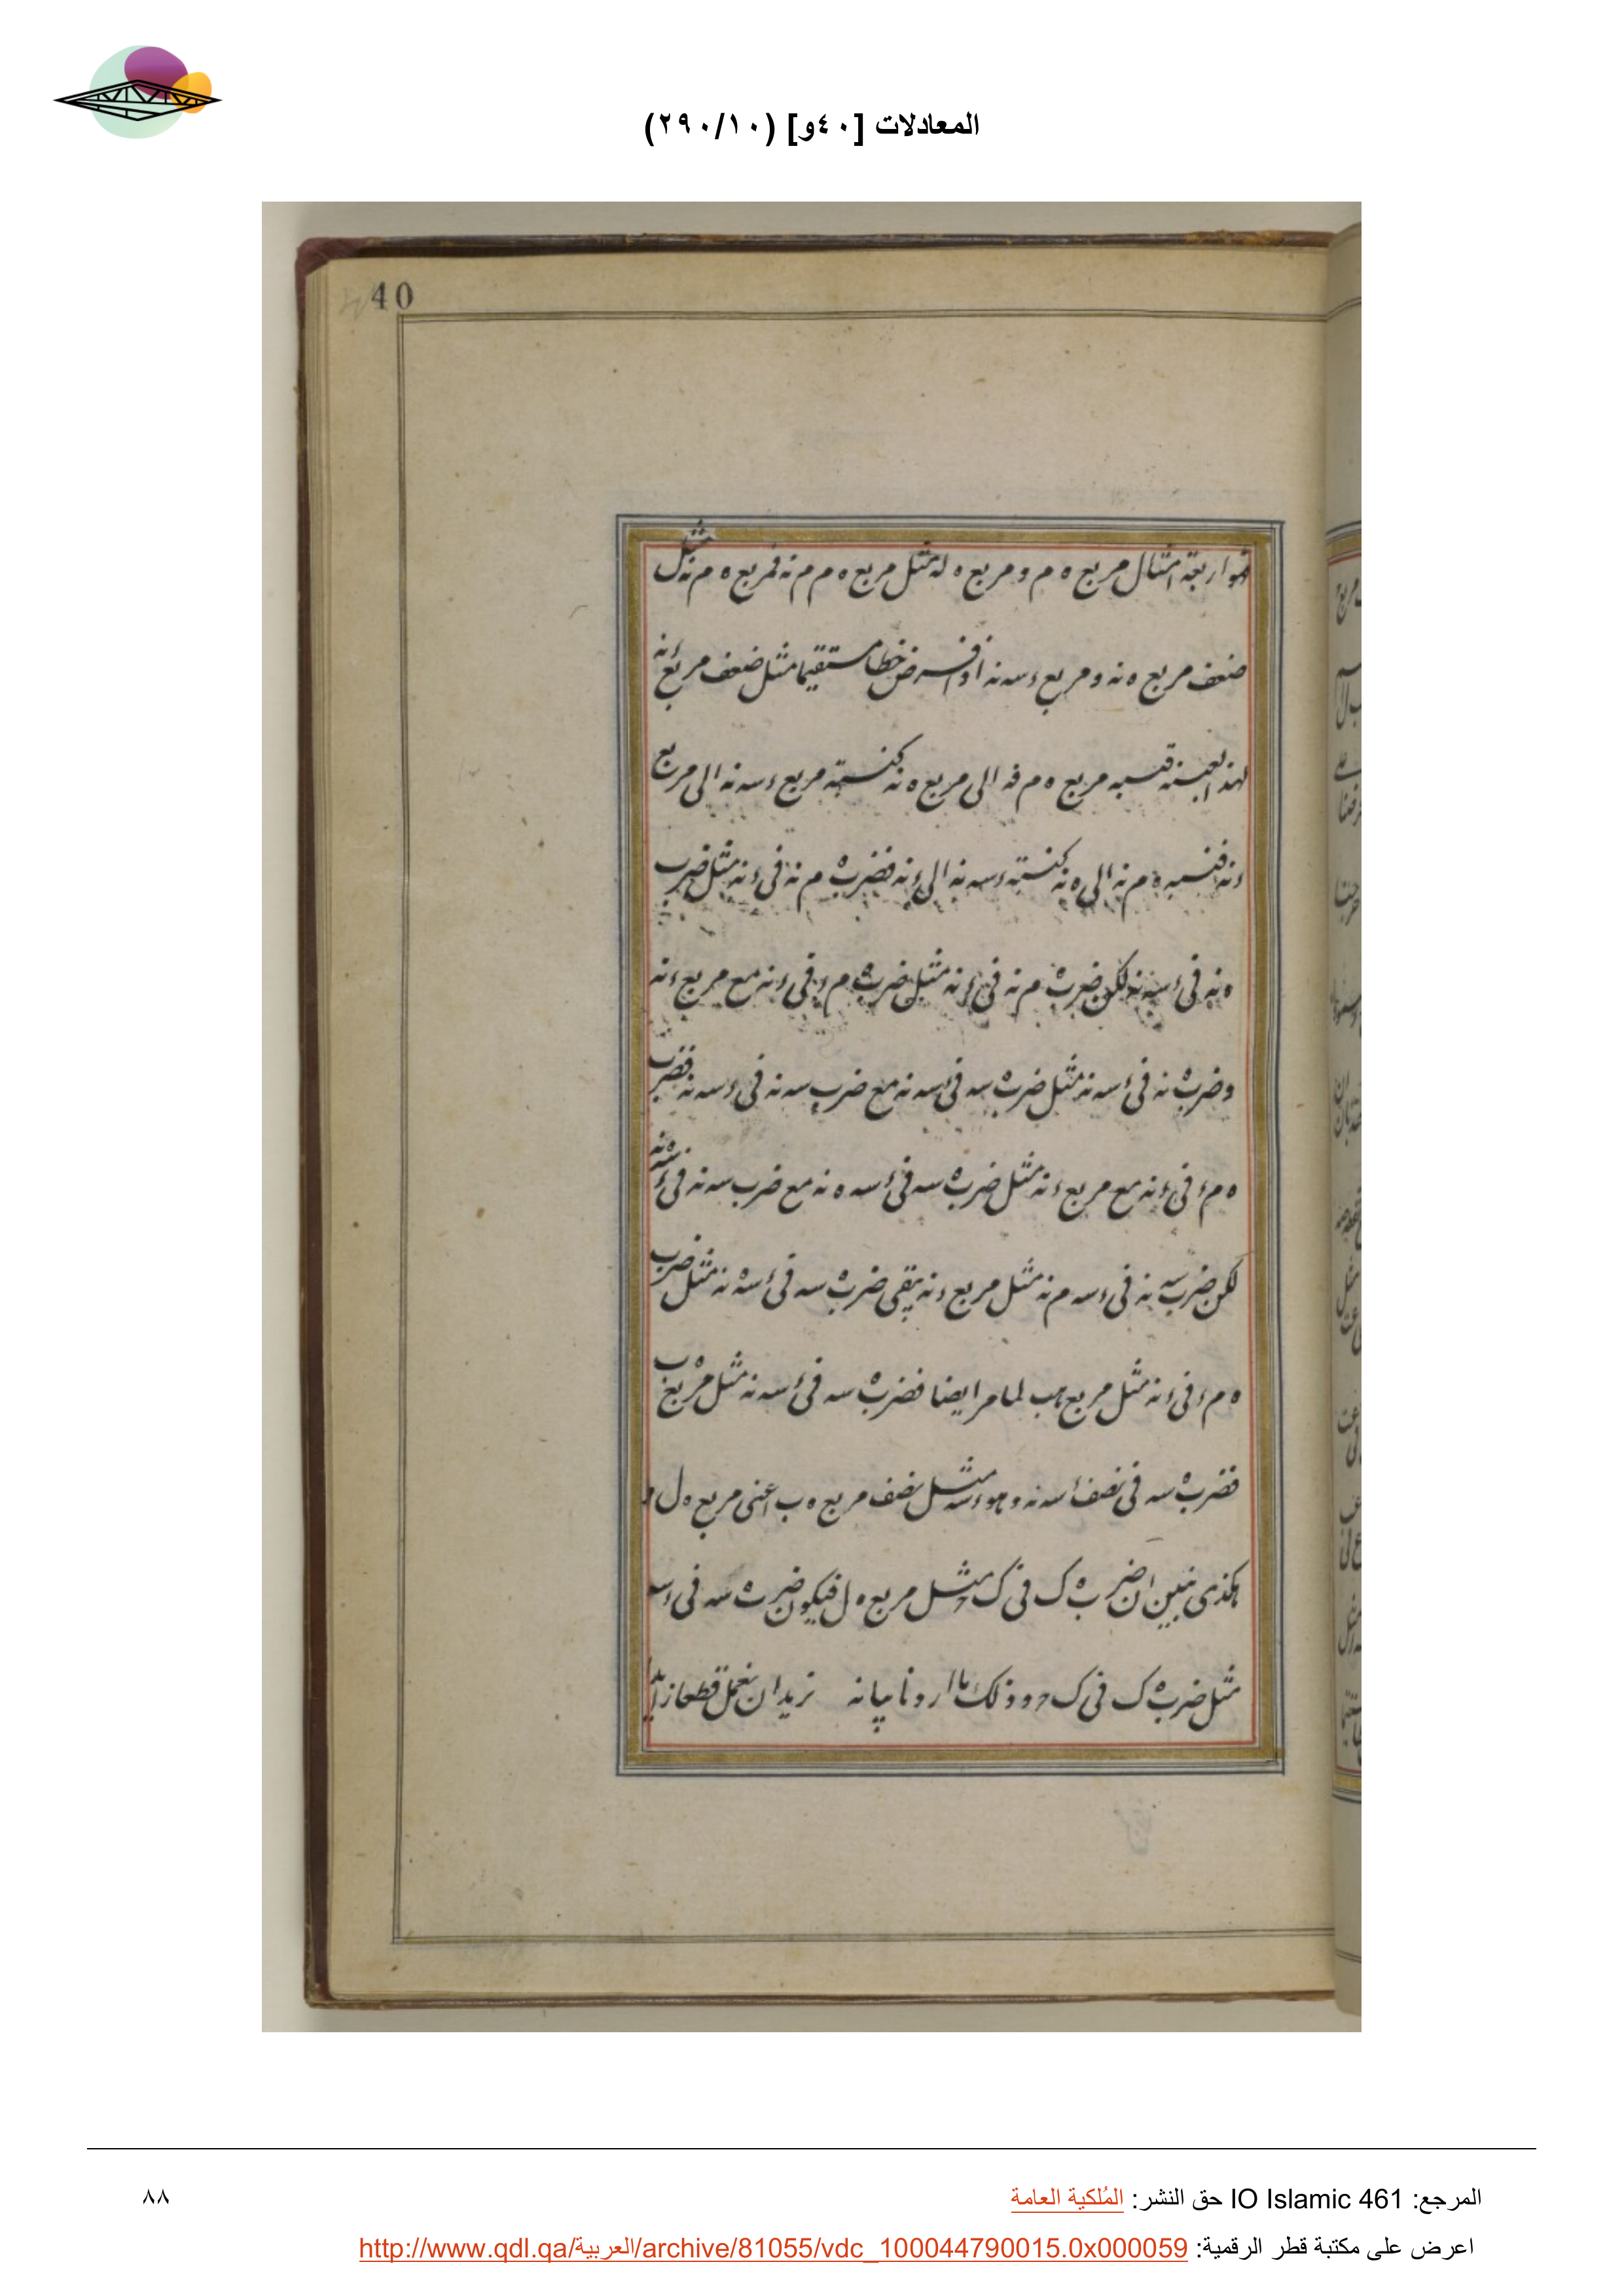 المعادلات [٤٠و] (٢٩٠/١٠)
40
اربعة امثال مربع ه م و مربع ه له مثل مربع ه م م نه فمربع ه م نه مثل
ضعف مربع ه نه و مربع ء سه نه اذا فرض خطا مستقيما مثل ضعف مربع ء نه
مربع ه م الى مربع ه نه كنسبة مربع ء سه نه الى مربع
ء نه فنسبه ه م نه الى ه نه كنسبته ء سه نه الى ء نه فضرب ه م نه فى ء نه مثل ضرب
ه نه فى ء سه نه لكن ضرب ه م نه فى ء نه مثل ضرب ه م ء فى ء نه مع مربع ء نه
وضرب ه نه فى ء سه نه مثل ضرب ه سه فى ء سه نه مع ضرب سه نه فى ء سه نه فضرب
ه م ء فى ء نه مع مربع ء نه مثل ضرب ه سه فى ء سه ه نه مع ضرب سه نه فى ء
لكن ضرب سه نه فى ء سه م نه مثل مربع ء نه يبقى ضرب ه سه فى ء سه نه مثل ضرب
ه م ء فى ء نه مثل مربع هب لما مر ايضا فضرب ه سه فى ء سه نه مثل مربع ه ب
فضرب ه سه فى نصف ء سه نه وهو ء سه مثل نصف مربع ه ب اعنى مربع ه ل و
هكذى نبين ان ضرب ه ك فى ك مثل مربع ه ل فيكون ضرب ه سه فى ء سه
مثل ضرب ه ك فى ك و وذلك ما اردنا بيانه نريد ان نعمل قطعا زايدا
المرجع: IO Islamic 461 حق النشر: المُلكية العامة
٨٨
اعرض على مكتبة قطر الرقمية: http://www.qdl.qa/العربية/archive/81055/vdc_100044790015.0x000059